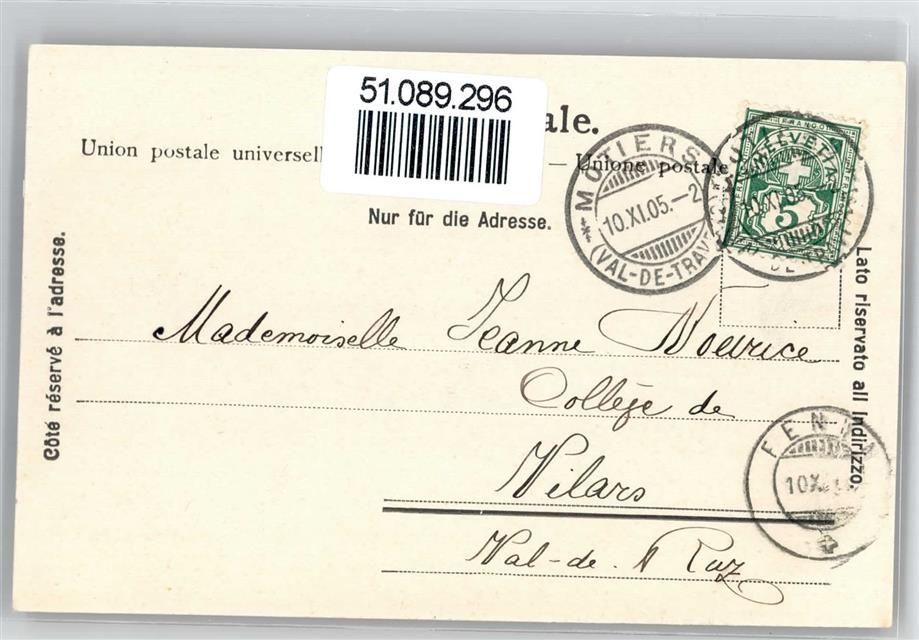 51.089.296
ale.
Union postale universell — Unione postale
Nur für die Adresse.
Côté réservé à l'adresse.
Lato riservato all indirizzo.
MOTIERS
10.XI.05.-2
(VAL-DE-TRAV
FRANCO
HELVETIA
5
Mademoiselle Jeanne Vourice
Collège de
Vilars
Val-de-Ruz
FENI
10.X